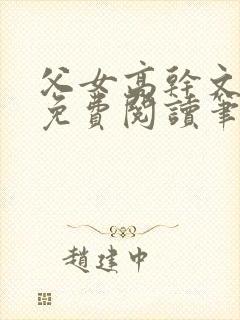 父女高幹文
免費閱讀筆
趙建中